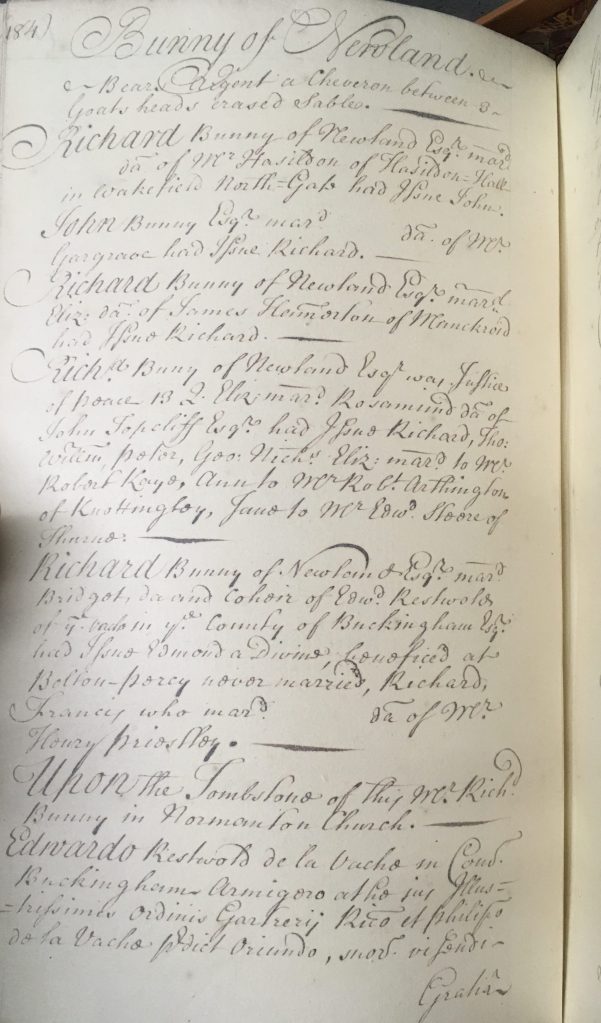 184)
Bunny of Newland.
Bears Argent a Cheveron between 3
Goats heads erased Sable.
Richard Bunny of Newland Esqr. mard
da. of Mr Hasildon of Hasildon=Hall
in Wakefield North=Gate had Issue John.
John Bunny Esqr. mard da. of Mr.
Gargrave had Issue Richard.
Richard Bunny of Newland Esqr. mard
Eliz: da. of James Hem̄erton of Monckroid
had Issue Richard.
Richd. Buny of Newland Esqr was Justice
of peace 13 Q. Eliz: mard. Rosamund da. of
John Topcliff Esqr. had Issue Richard, Tho:
Willm, peter, Geo: Nichs. Eliz: mard to Mr.
Robert Kaye, Ann to Mr Robt. Arthington
of Knottingley, Jane to Mr Edwd. Steere of
Richard Bunny of Newland Esqr. mard
Bridget, da and Coheir of Edwd Restwold
of ye Vach in ye County of Buckingham Esqr.
had Issue Edmond a Divine, beneficed at
Bolton-percy never married, Richard,
Francis who mard. da of Mr.
Henry priestley.
Upon the Tombstone of this Mr. Richd
Bunny in Normanton Church.
Edwardo Restwold de la Vache in Com̄.
Buckingham Armigero at he jus Illus=
=trissimis ordinis Garterij Rico et philipo
de la Vache pdict oriundo,
Gratia